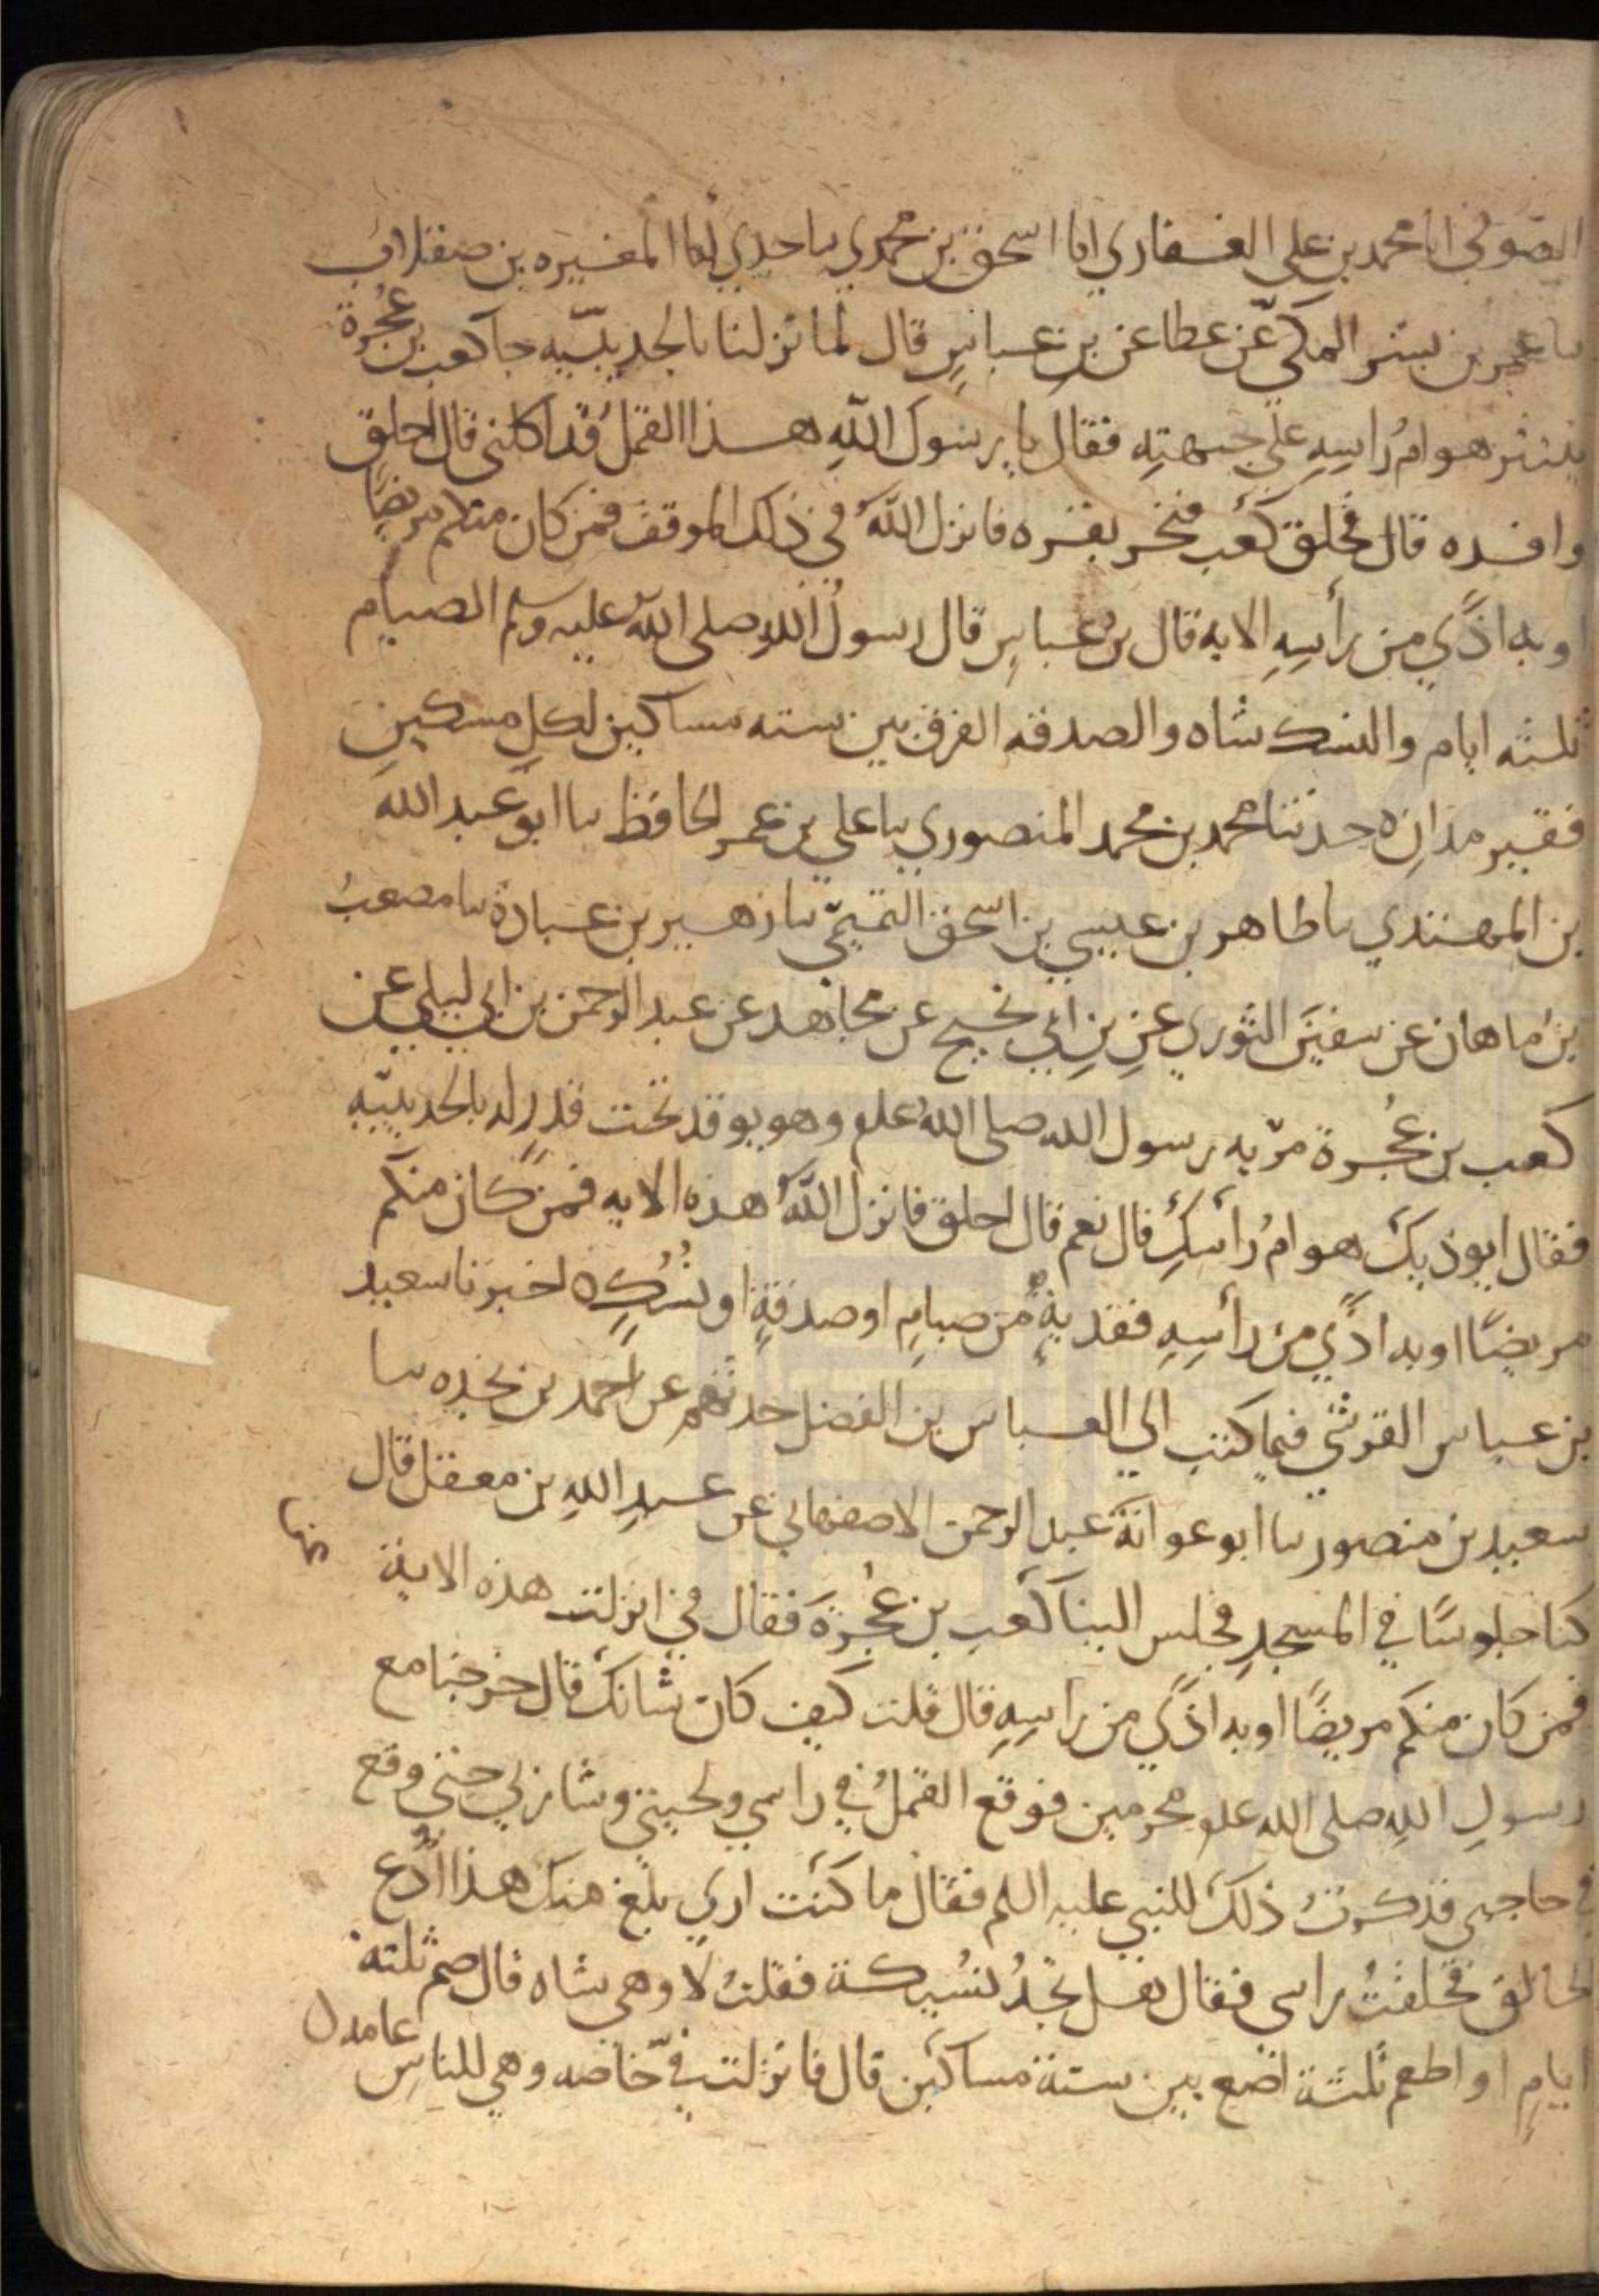 الصوفي انا محمد بن علي الغفاري انا اسحق بن محمدي سا جدي انا المغيره بن صقلاب
سا عمر بن بشر المكي عن عطا عن بن عباس قال لما نزلنا بالحديبيه جا كعب بن عجرة
ينثر هوام راسه على جبهته فقال يا رسول الله هذا القمل قد اكلني قال احلق
وافده قال فحلق كعب فنحر بقره فانزل الله في ذلك الموقف فمن كان منكم مريضا
او به اذًي من رأسه الايه قال بن عباس قال رسول الله صلى الله عليه وسلم الصيام
ثلثه ايام والنسك شاه والصدقه الفرق بين سته مساكين لكل مسكين
فقير مدان ه حدثنا محمد بن محمد المنصوري سا علي بن عمر الحافظ سا ابو عبد الله
بن المهتدي سا طاهر بن عيسي بن اسحق التميمي سا زهير بن عبادة سا مصعب
بن ماهان عن سفين الثوري عن بن ابي نجيح عن مجاهد عن عبد الرحمن بن ابي ليلي عن
كعب بن عُجرة مرّ به رسول الله صلى الله علم وهو يوقد تحت قدر له بالحديبيّه
فقال ايوذيك هوامُ رأسك قال نعم قال احلق فانزل الله هذه الايه فمن كان منكم
مريضًا او به اذًي من رأسه ففدية من صيامٍ او صدقةٍ او نسك ه اخبرنا سعيد
بن عباس القرشي فيما كتب الي العباس بن الفضل حدثهم عن احمد بن نجده سا
سعيد بن منصور سا ابو عوانة عبد الرحمن الاصفهاني عن عبد الله بن معقل قال
كنا جلوسًا في المسجد فجلس الينا كعب بن عُجرة فقال فيّ انزلت هذه الاية
فمن كان منكم مريضًا او به اذًي من راسه قال قلت كيف كان شانك قال خرجنا مع
رسول الله صلى الله علم محرمين فوقع القملُ في راسي ولحيتي وشاربي حتي وقع
في حاجبي فذكرتُ ذلك للنبي عليه السلم فقال ما كنت اري بلغ منك هذا ادع
الحالق فحلقتُ راسي فقال هل تجدُ نسيكة فقلت لا وهي شاه قال صم ثلثة
ايامٍ او اطعم ثلثة اصع بين ستة مساكين قال فانزلت فيّ خاصه وهي للناس عامه